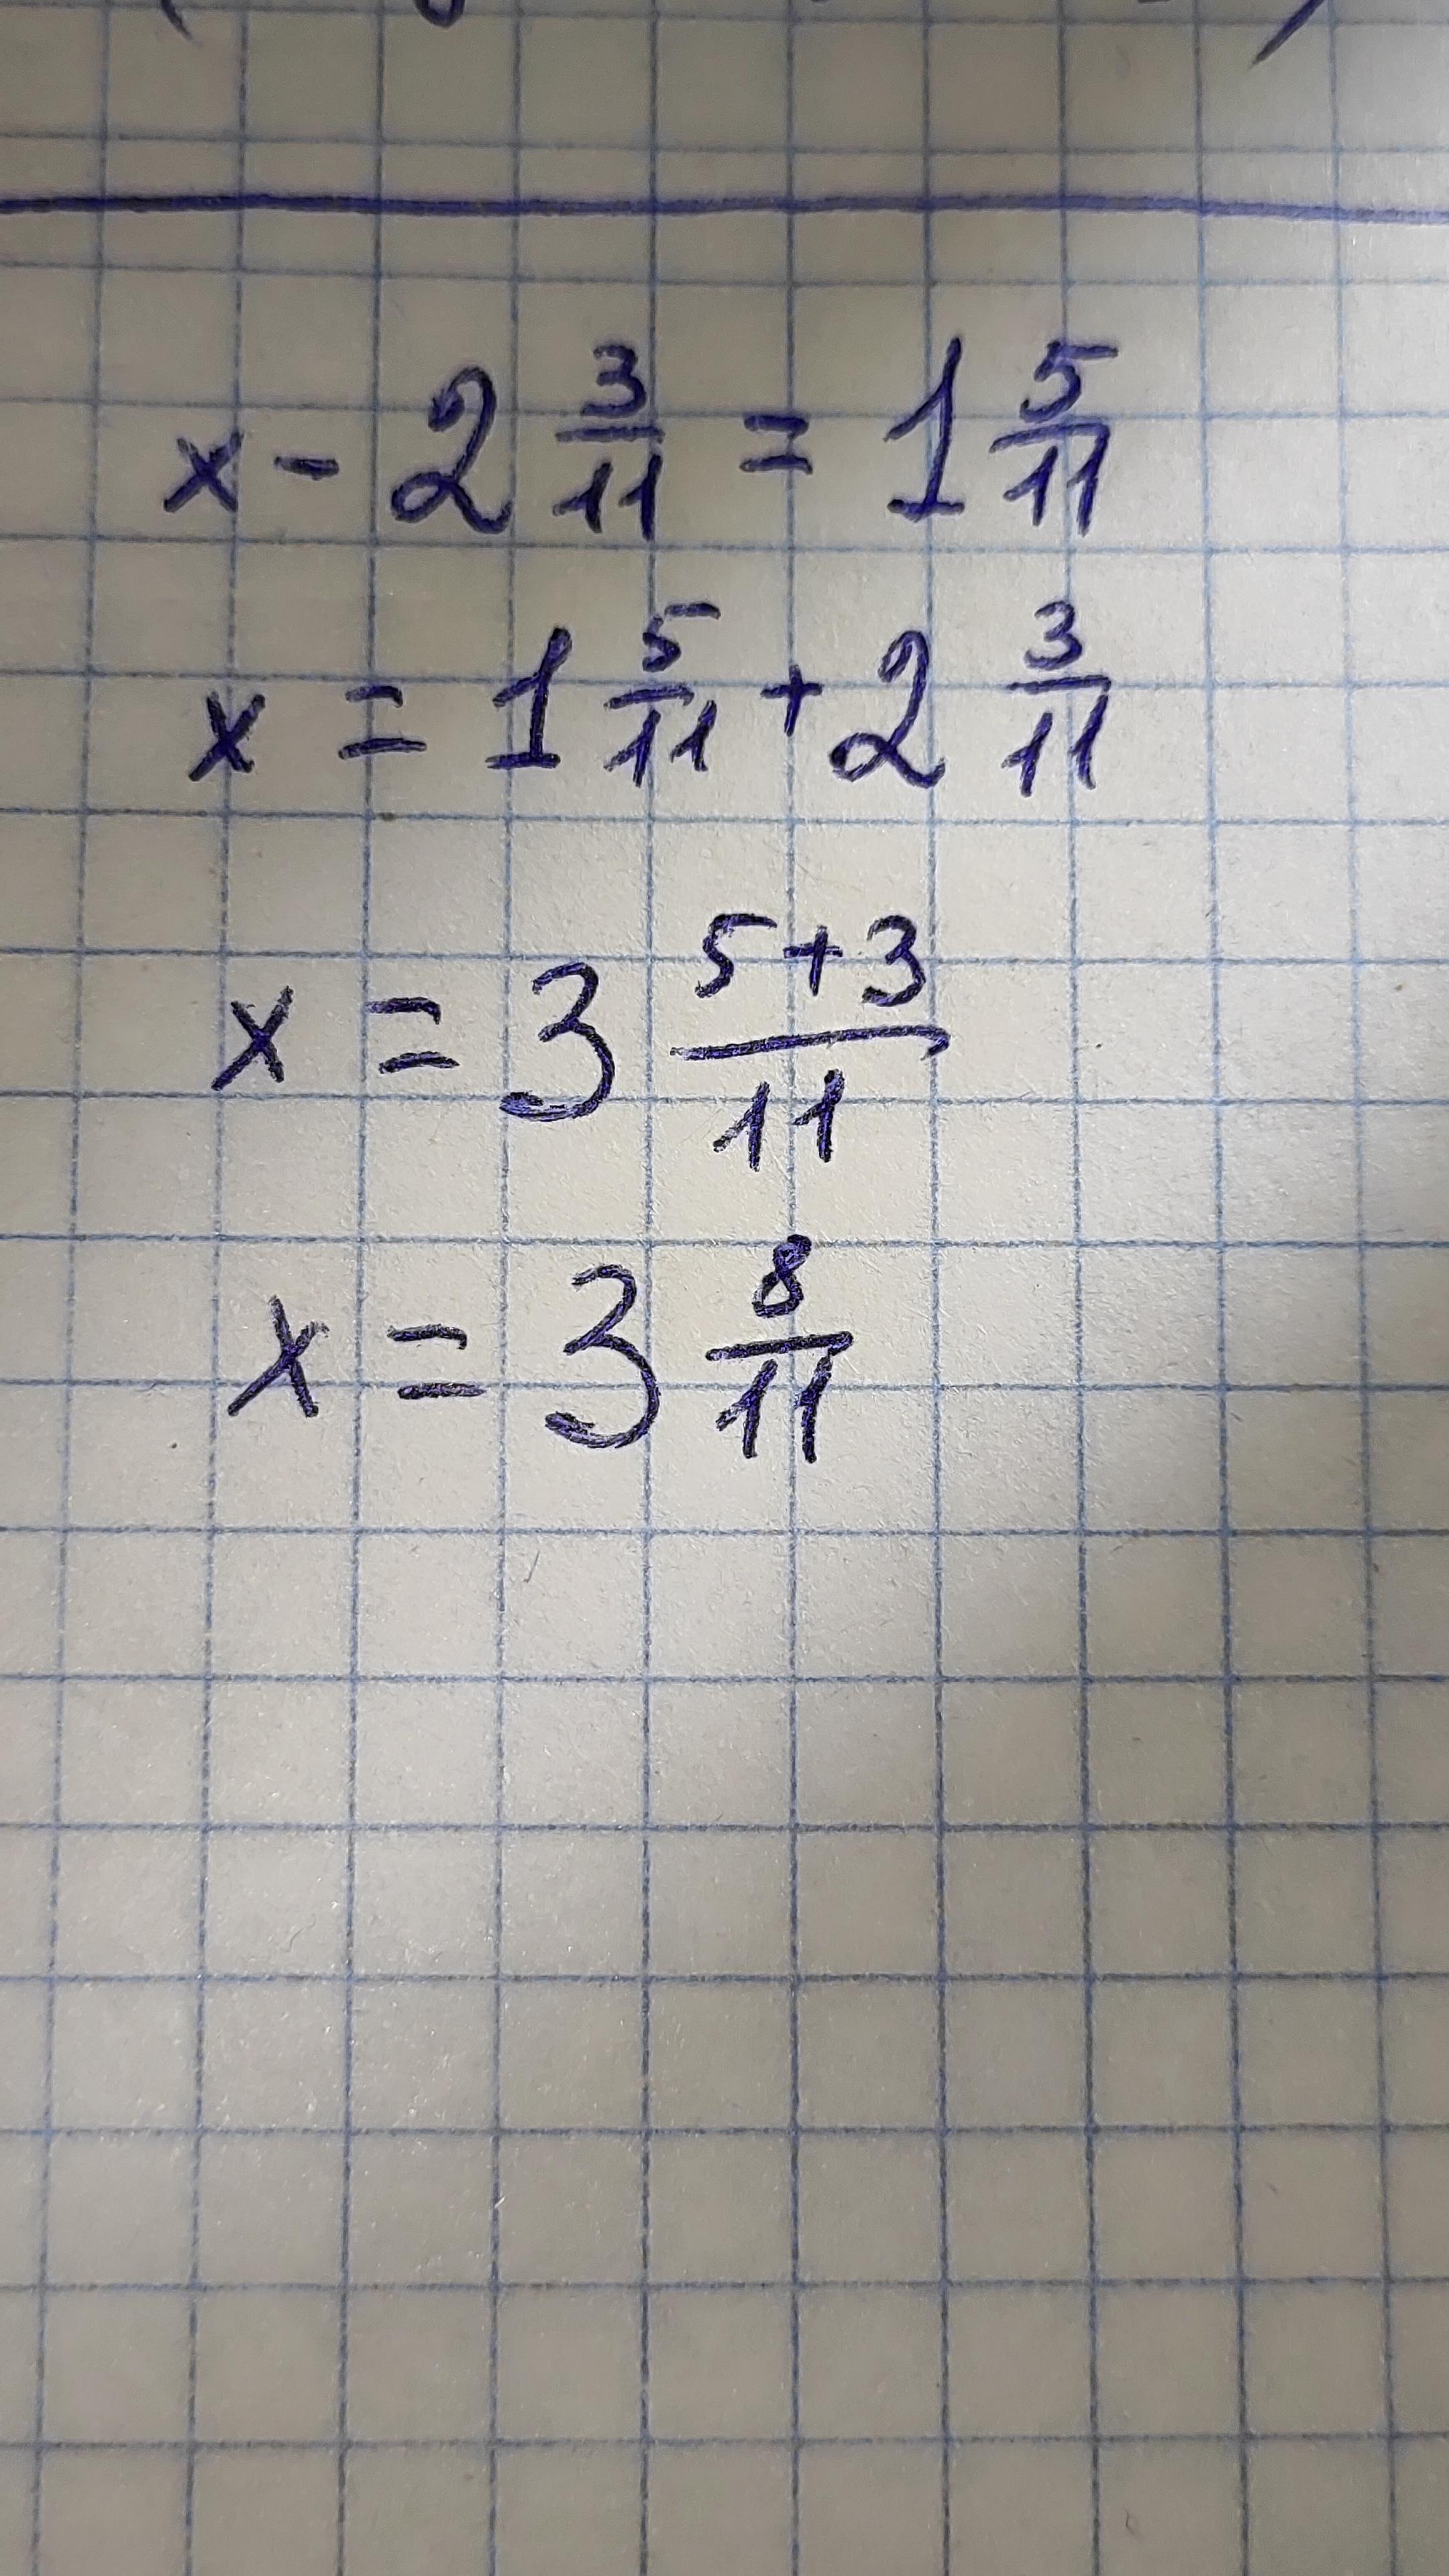 x - 2 3/11 = 1 5/11
x = 1 5/11 + 2 3/11
x = 3 (5+3)/11
x = 3 8/11